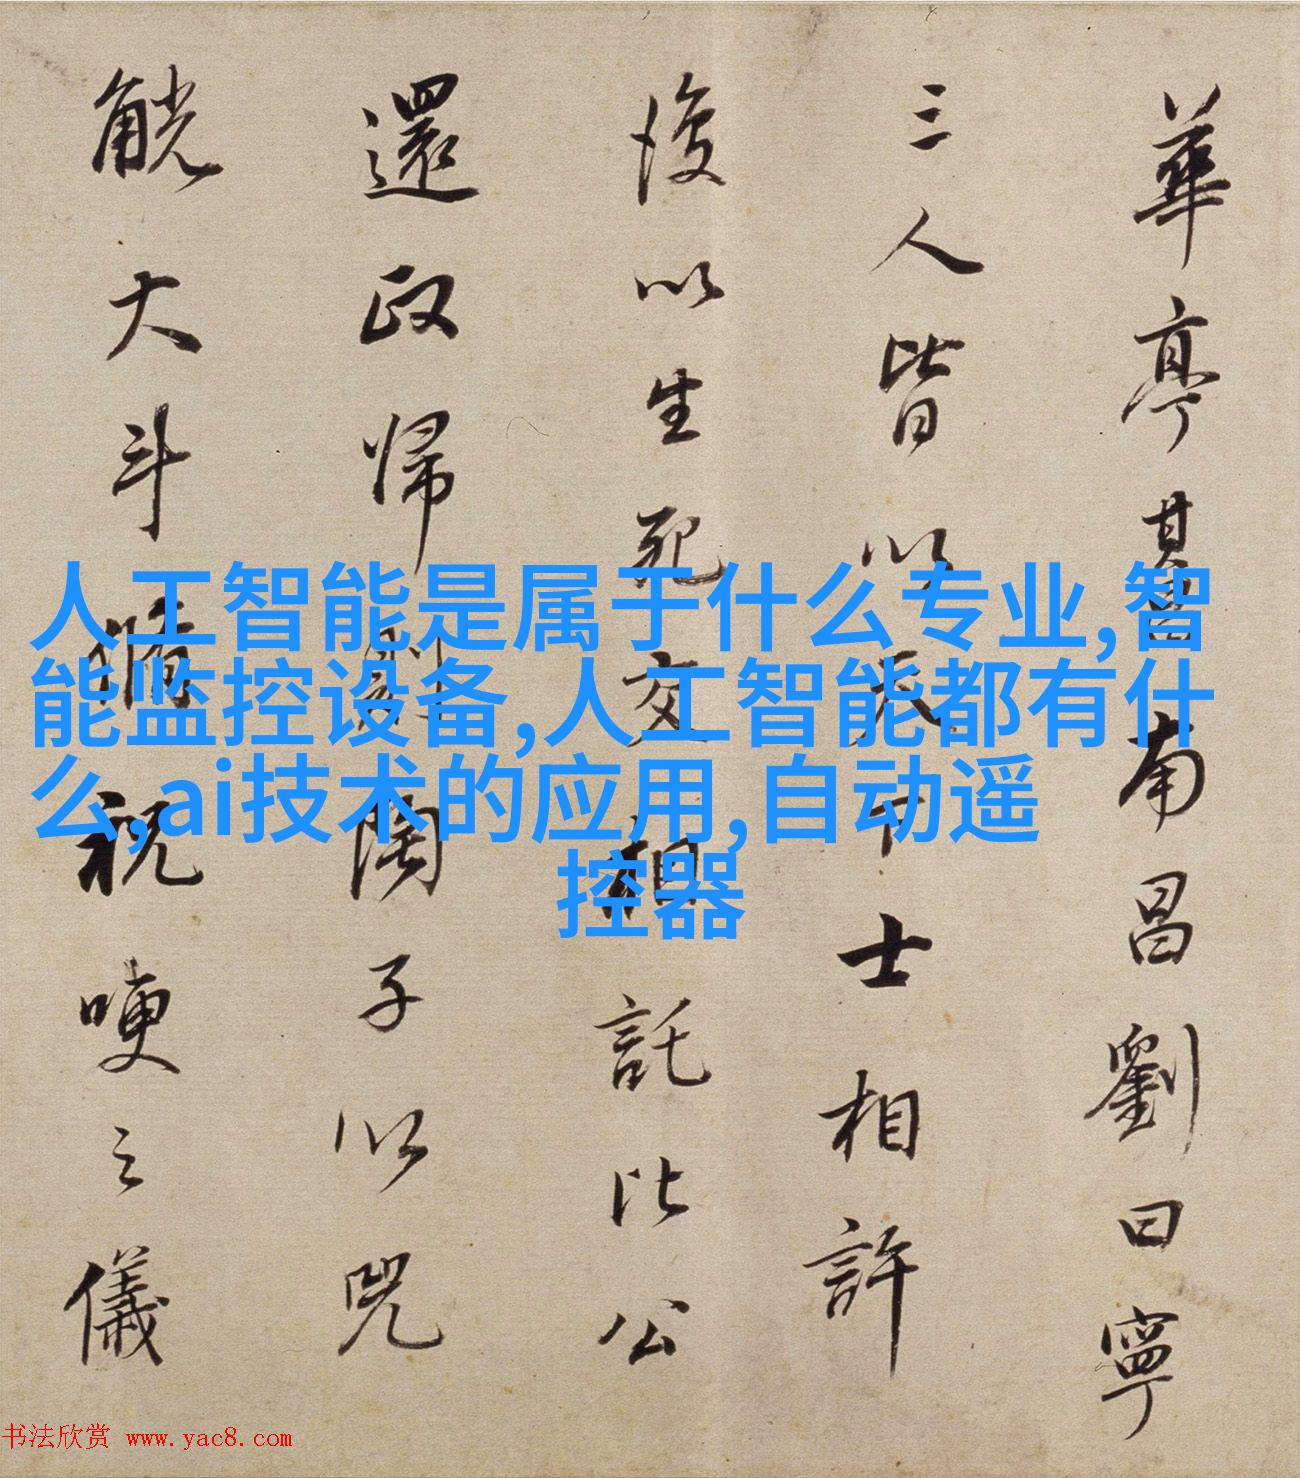 華亭莫南昌劉曰寧
三人皆以天下士相許
後以生死交相託比公
還政帰則陶子以兕
觥大斗脩祝哽之儀
人工智能是属于什么专业,智
能监控设备,人工智能都有什
么,ai技术的应用,自动遥
控器
书法欣赏 www.yac8.com